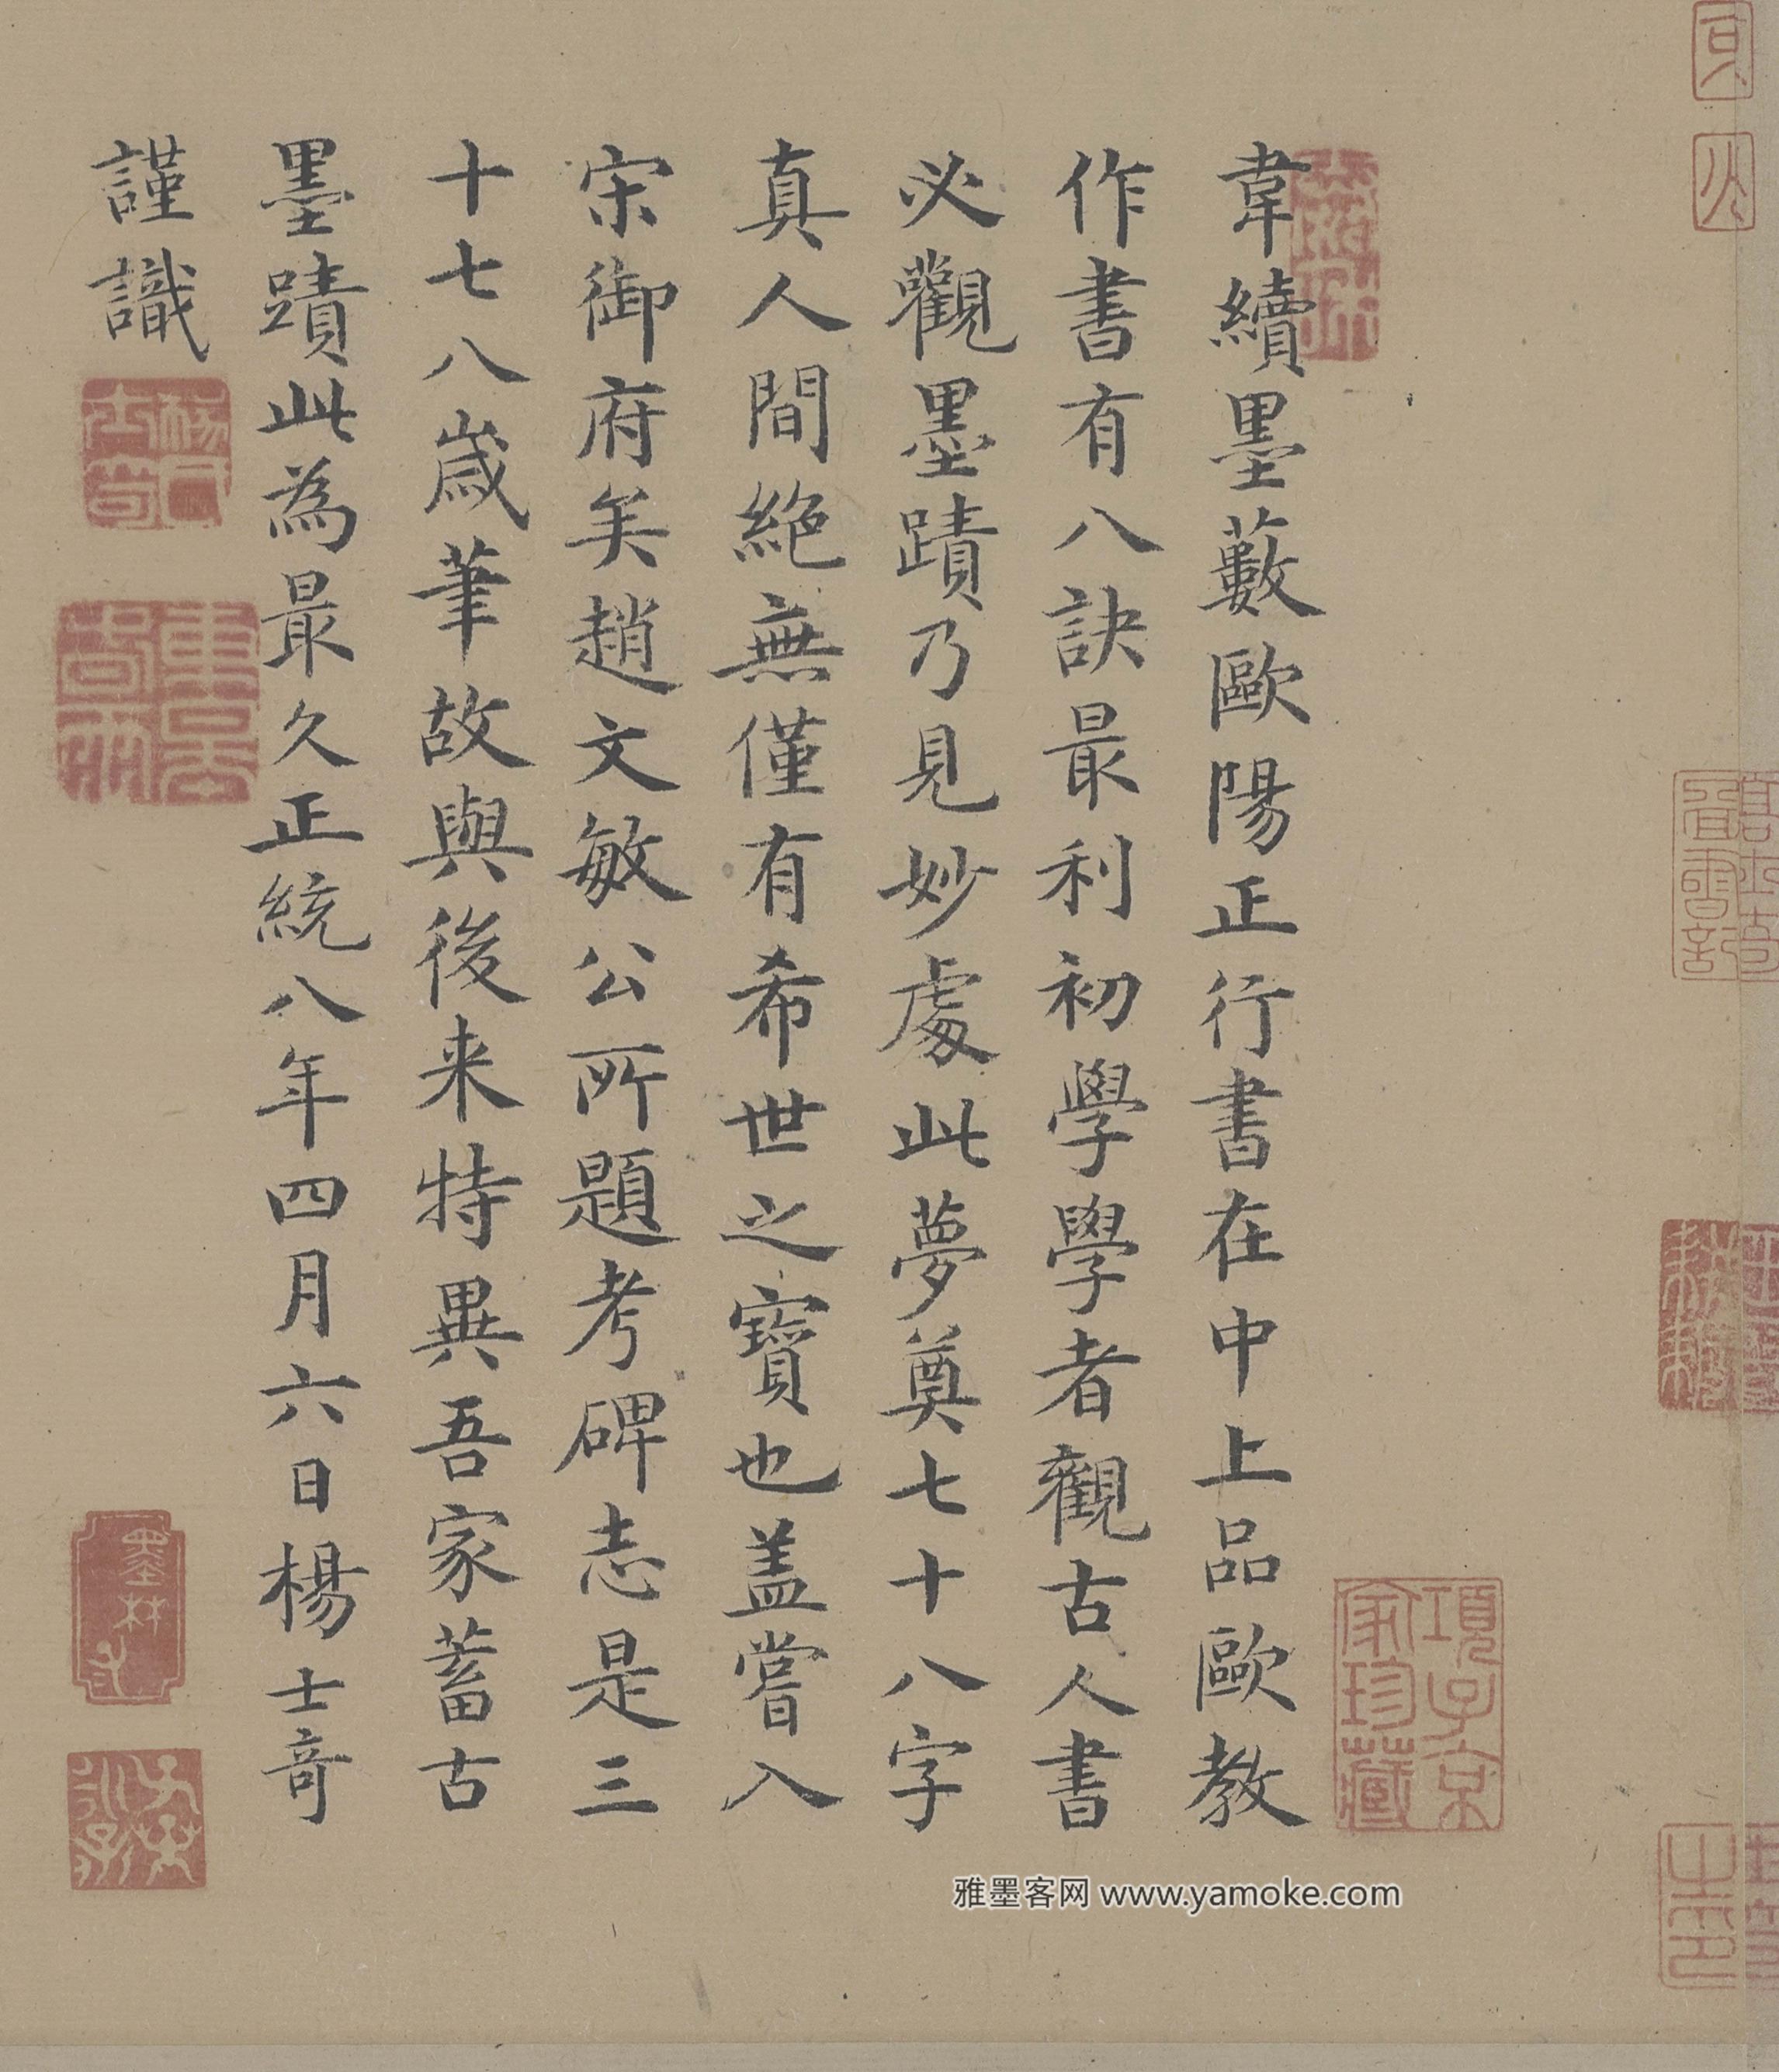 韋續墨藪歐陽正行書在中上品歐教
作書有八訣最利初學學者觀古人書
必觀墨蹟乃見妙處此夢奠七十八字
真人間絕無僅有希世之寶也盖嘗入
宋御府矣趙文敏公所題考碑志是三
十七八歲筆故與後来特異吾家蓄古
墨蹟此為最久正統八年四月六日楊士竒
謹識
項子京
家珍藏
墨林
雅墨客网 www.yamoke.com